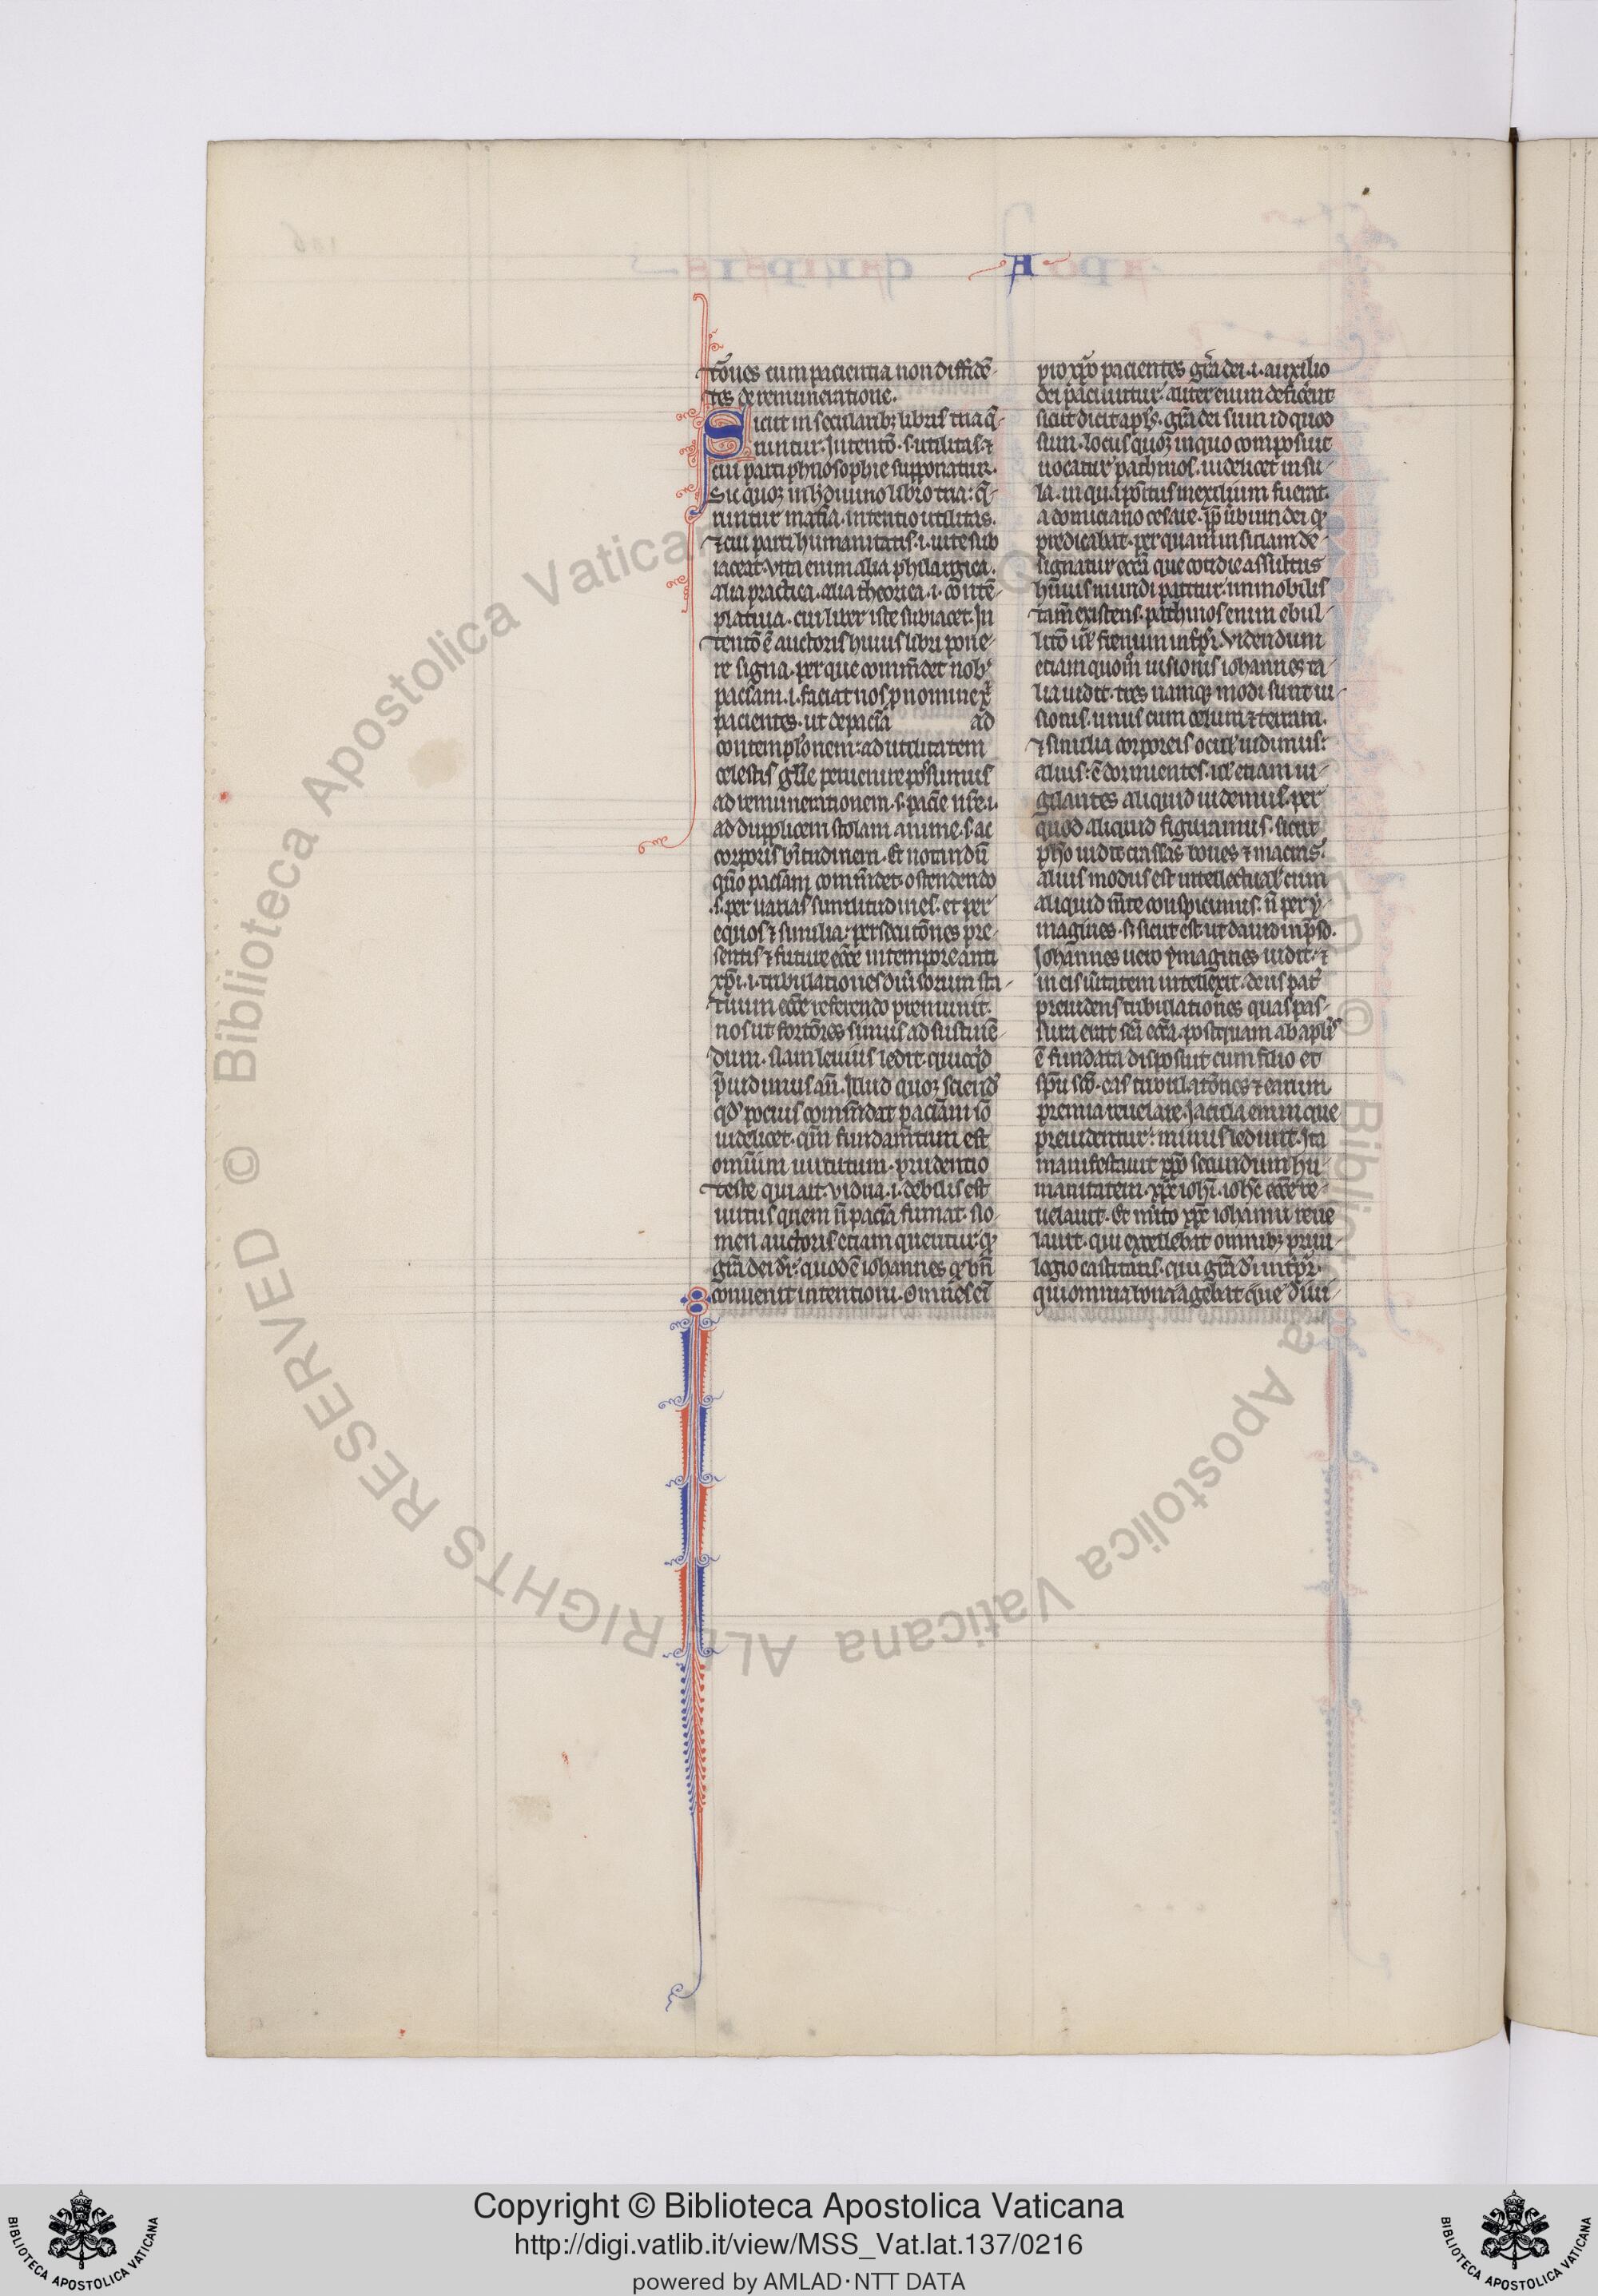 A
tōnes cum pacientia non diffidē-
tes de remuneratione.
Sicut in secularib; libris tria q̄-
runtur. Intentō. s. utilitas. ⁊
cui parti phylosophie supponatur.
Sic quoq; in h̄ diuino libro tria: q̄-
runtur mat̄ia. intentio utilitas.
⁊ cui parti humanitatis. i. uite sub
iaceat. Vita enim alia philargica.
alia practica. alia theorica. i. contē-
platiua. cui liber iste subiacet. In
tentō ē auctoris huius libri pone-
re signa. per que com̄idet nob̄
pacīam. i. faciat nos p̱ nomine xp̄i
pacientes. ut de pacīa ad
contemplōnem: ad utilitatem
celestis gl̄ie peruenire possimus
ad remunerationem. s. pacīe nr̄e. i.
ad dupplicem stolam anime. s. ac
corporis bītudinem. Et notandū
quō pacīam com̄idet. ostendendo
.s. per uarias similitudines. et per
equos ⁊ similia: persecutōnes pre-
sentis ⁊ future ecc̄e in tempore anti
xp̄i. i. tribulationes diu̾sorum sta-
tuum ecc̄e referendo premunit.
nos ut fortōres simus ad sustinē-
dum. Nam leuius ledit. quicq̄d
p̄uidimus añ. Illud quoq; sciend̄
qd̄ pocius com̄idat pacīam iō
uidelicet. qm̄ fundam̄tum est
omnium uirtutum. prudentio
teste qui ait. Vidua. i. debilis est
uirtus quem n̄ pacīa firmat. No-
men auctoris etiam queritur. q̱
gr̄a dei dr̄: quod ē iohannes q̱ bn̄
conuenit intentioni. Omnes ei
pro xp̄o pacientes gr̄a dei. i. auxilio
dei paciuntur. aliter enim deficerent
sicut dicit apl̄s. gr̄a dei sum id quod
sum. Locus quoq; in quo composuit
uocatur pathmos. uidelicet insu-
la. in qua positus in exilium fuerat.
a domiciano cesare. p̱p̱ uerbum dei q̱
predicabat. per quam insulam de-
signatur ecc̄a que cotidie assultus
huius mundi patitur. inmobilis
tam̄ existens. pathmos enim ebul-
litō ul̄ fretum int̄p̱r. Videndum
etiam quom̄ uisionis iohannes ta-
lia uidit. tres namq; modi sunt ui-
sionis. unus cum celum ⁊ terram.
⁊ similia corporeis ocul̄ uidimus:
alius: ē dormientes. ul̄ etiam ui-
gilantes aliquid uidemus. per
quod aliquid figuramus. sicut
pharo uidit crassas boues ⁊ macras.
alius modus est intellectual̄ cum
aliquid m̄te conspicimus. n̄ per y-
magines. s; sicut est ut dauid in p̄s̄o.
Iohannes uero ymagines uidit: ⁊
in eis uītatem intellexit. deus pat̄
preuidens tribulationes quas pas-
sura erat sc̄a ecc̄a. postquam ab apl̄is
ē fundata disposuit cum filio et
sp̄u sc̄o. eas tribulatōnes ⁊ earum
premia reuelare. Iacula enim que
preuidentur: minus ledunt. Ita
manifestauit xp̄o secundum hu-
manitatem. xp̄c iohī. iohē ecc̄e re-
uelauit. Et m̄ito xp̄c iohanni reue
lauit. qui excellebat omnib; priui-
legio castitatis. qui gr̄a dī int̄p̱r.
qui omnia bona agebat que diui-
Copyright © Biblioteca Apostolica Vaticana
http://digi.vatlib.it/view/MSS_Vat.lat.137/0216
powered by AMLAD·NTT DATA
BIBLIOTECA APOSTOLICA VATICANA
BIBLIOTECA APOSTOLICA VATICANA
© Biblioteca Apostolica Vaticana
ALL RIGHTS RESERVED
© Biblioteca Apostolica Vaticana